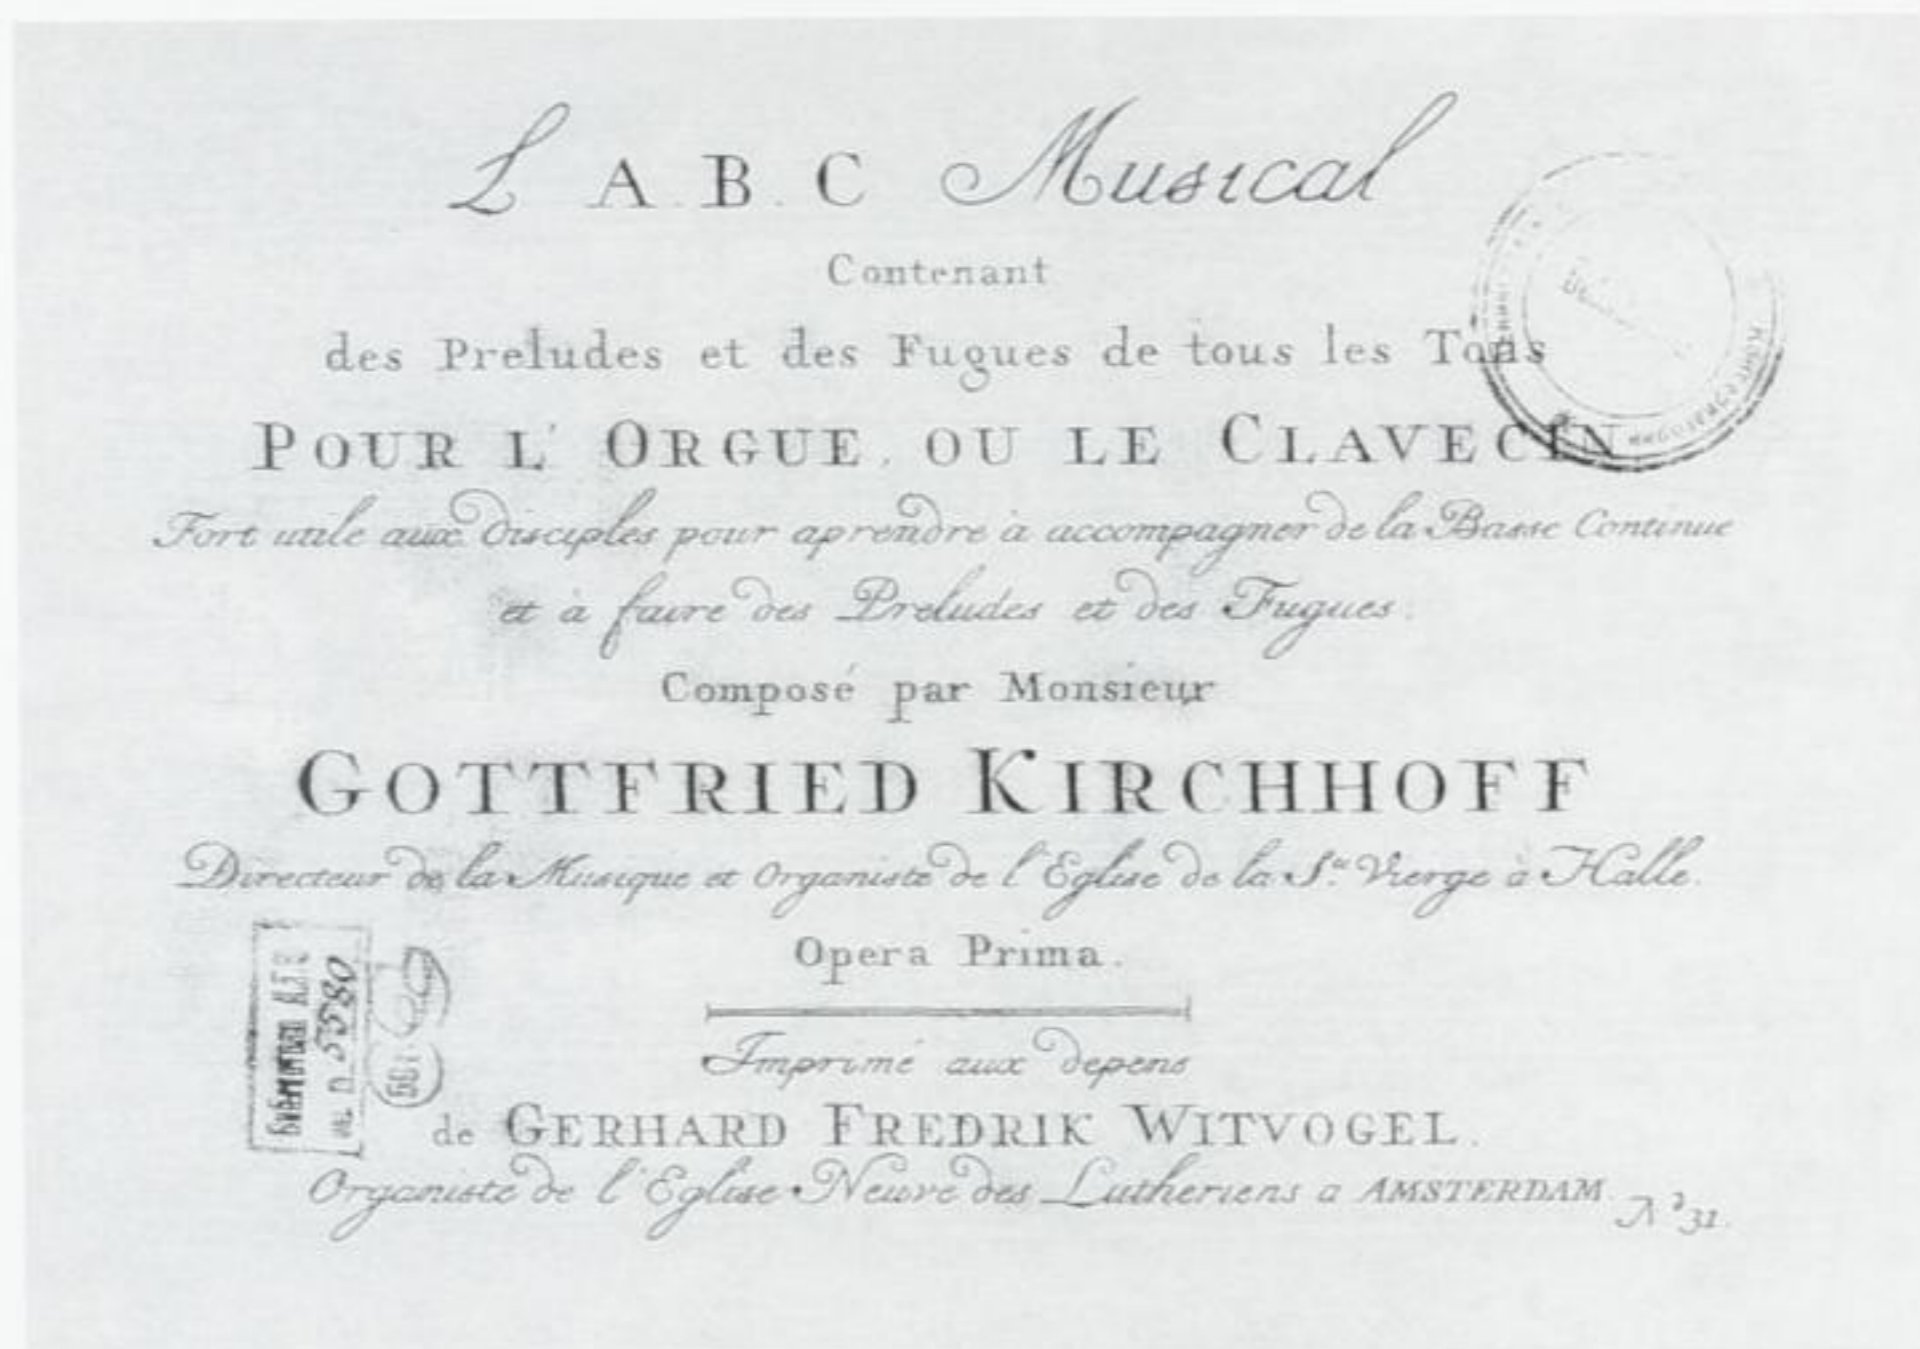 L A.B.C Musical
Contenant
des Preludes et des Fugues de tous les Tons
POUR L' ORGUE, OU LE CLAVECIN
Fort utile aux Disciples pour aprendre à accompagner de la Basse Continue
et à faire des Preludes et des Fugues.
Composé par Monsieur
GOTTFRIED KIRCHHOFF
Directeur de la Musique et Organiste de l'Eglise de la S.te Vierge à Halle.
Opera Prima.
Imprimé aux depens
de GERHARD FREDRIK WITVOGEL.
Organiste de l'Eglise Neuve des Lutheriens a AMSTERDAM.
N.o 31.